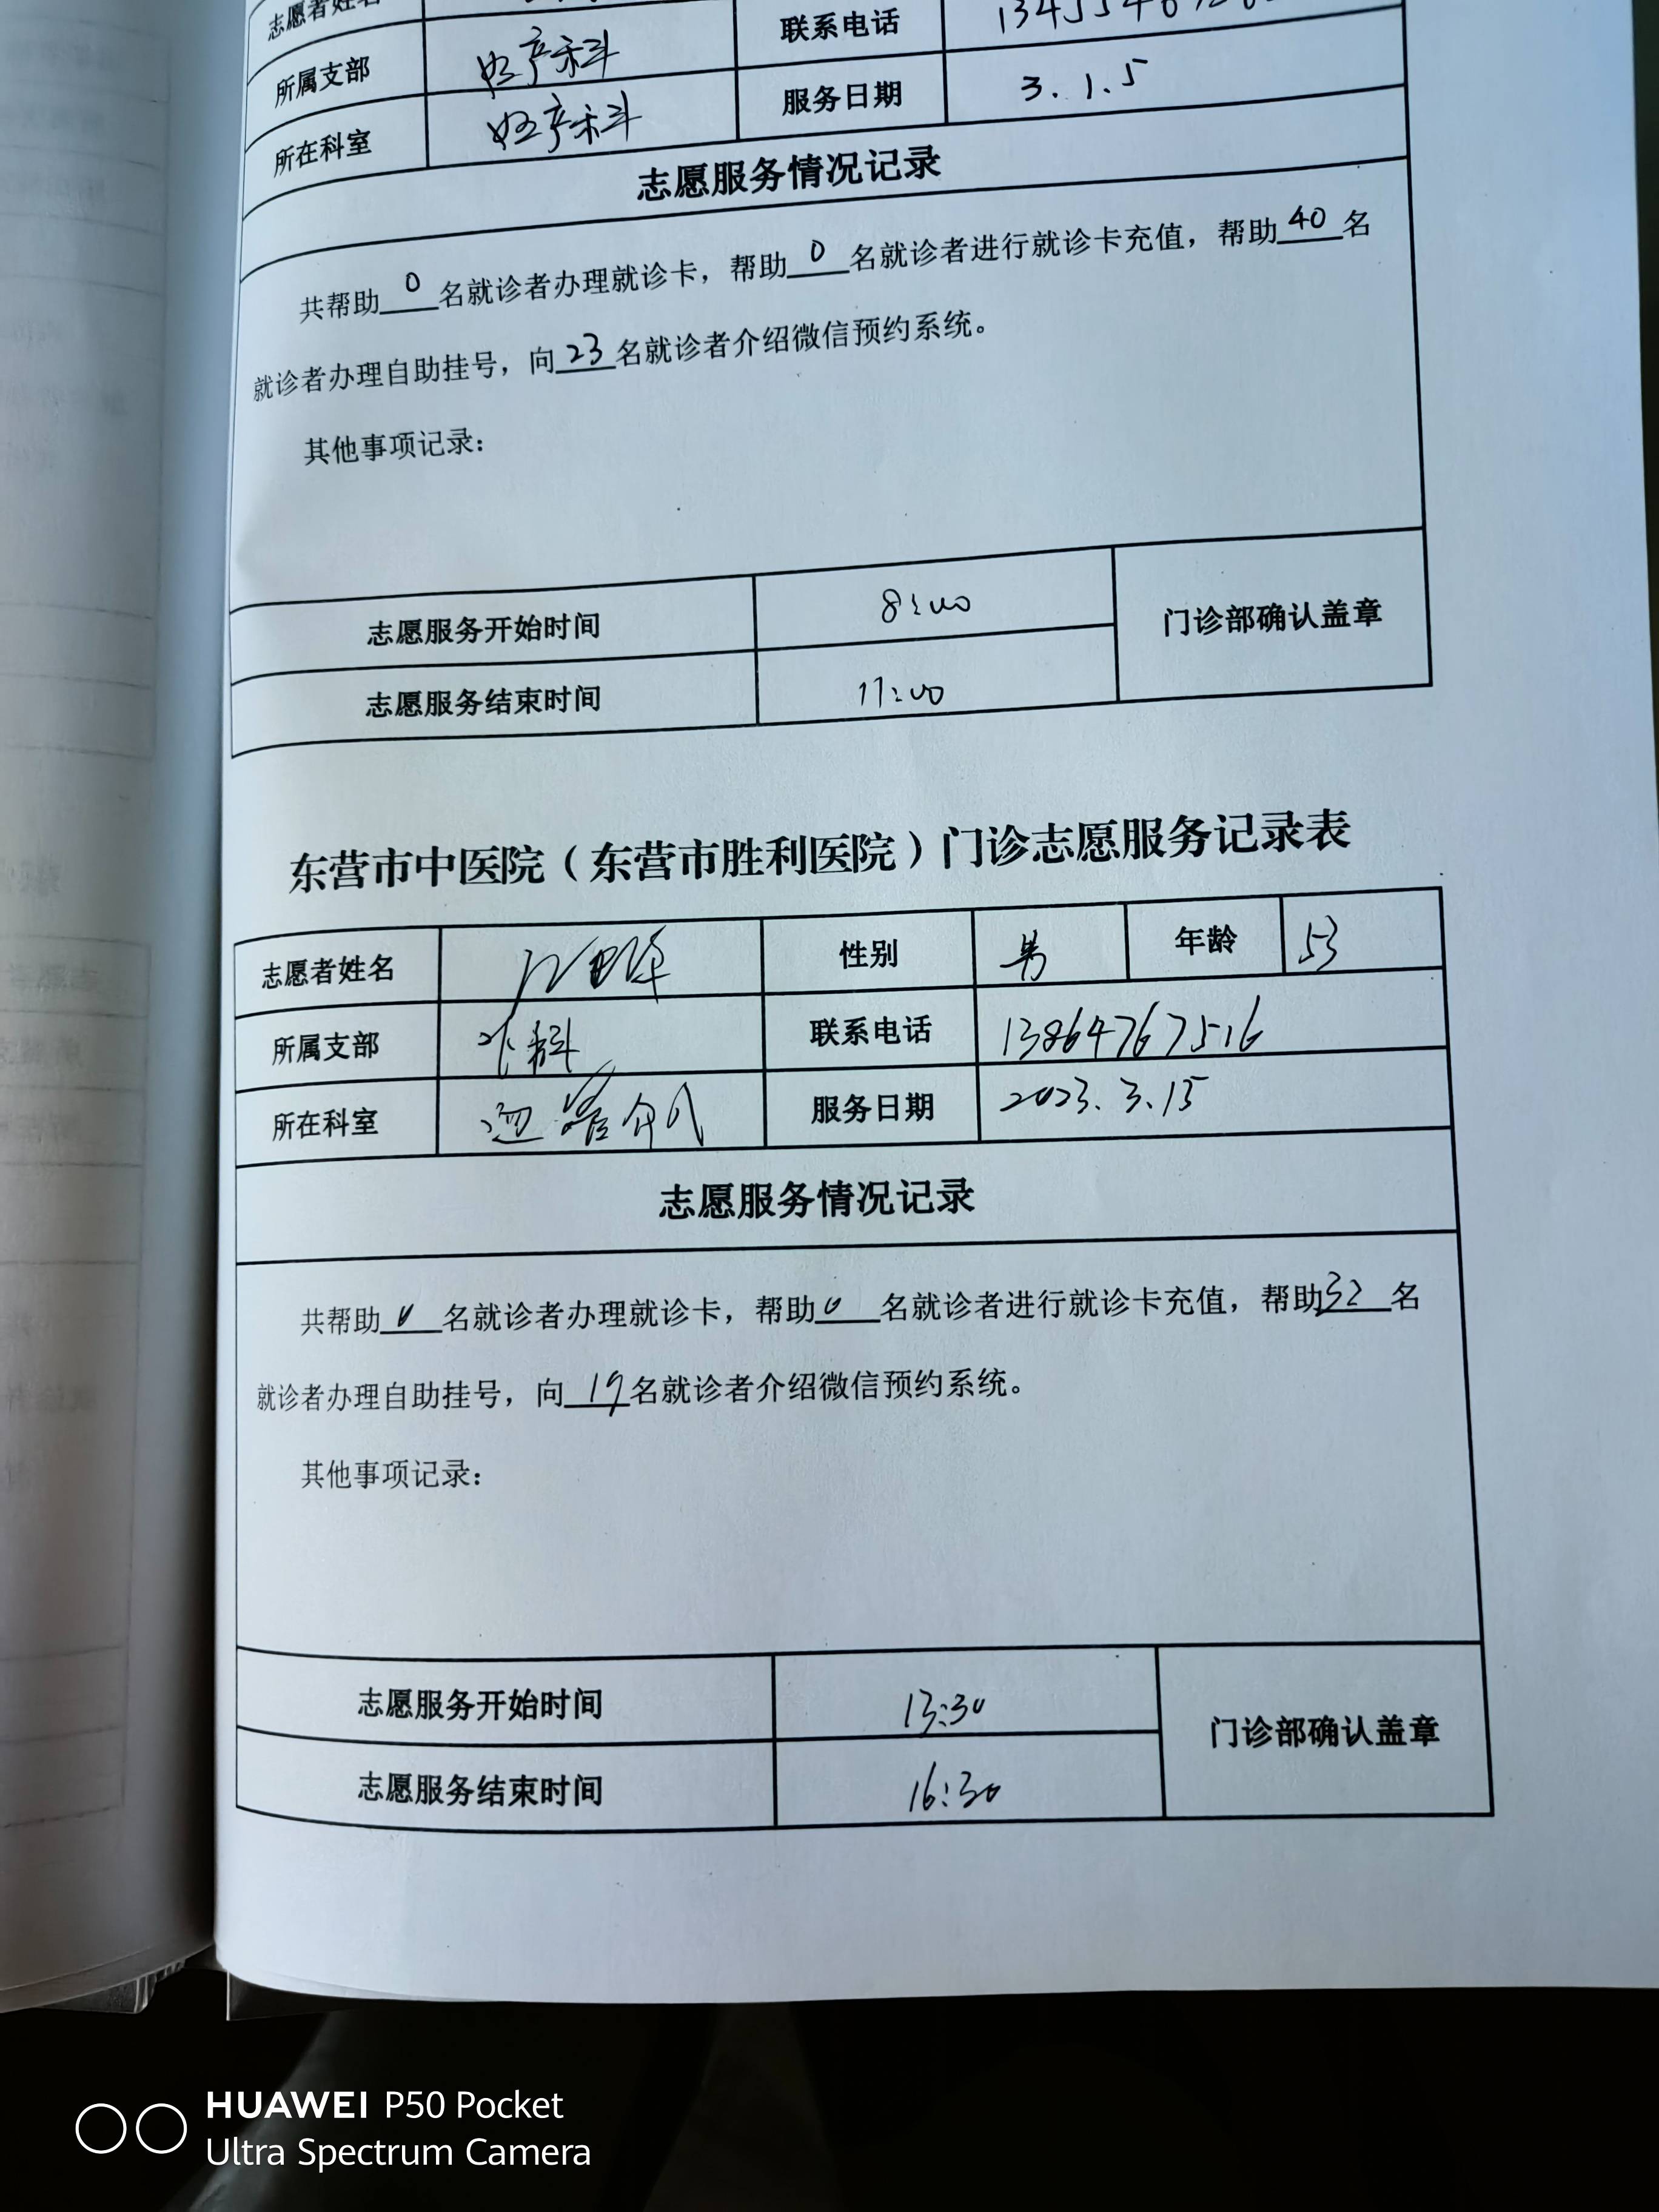 志愿者姓名
所属支部 妇产科 联系电话
所在科室 妇产科 服务日期 3.1.5
志愿服务情况记录
共帮助0名就诊者办理就诊卡，帮助0名就诊者进行就诊卡充值，帮助40名
就诊者办理自助挂号，向23名就诊者介绍微信预约系统。
其他事项记录：
志愿服务开始时间 8:00
门诊部确认盖章
志愿服务结束时间 11:00
东营市中医院（东营市胜利医院）门诊志愿服务记录表
志愿者姓名 性别 男 年龄 53
所属支部 外科 联系电话 13864767516
所在科室 服务日期 2023.3.15
志愿服务情况记录
共帮助0名就诊者办理就诊卡，帮助0名就诊者进行就诊卡充值，帮助32名
就诊者办理自助挂号，向19名就诊者介绍微信预约系统。
其他事项记录：
志愿服务开始时间 13:30
门诊部确认盖章
志愿服务结束时间 16:30
HUAWEI P50 Pocket
Ultra Spectrum Camera